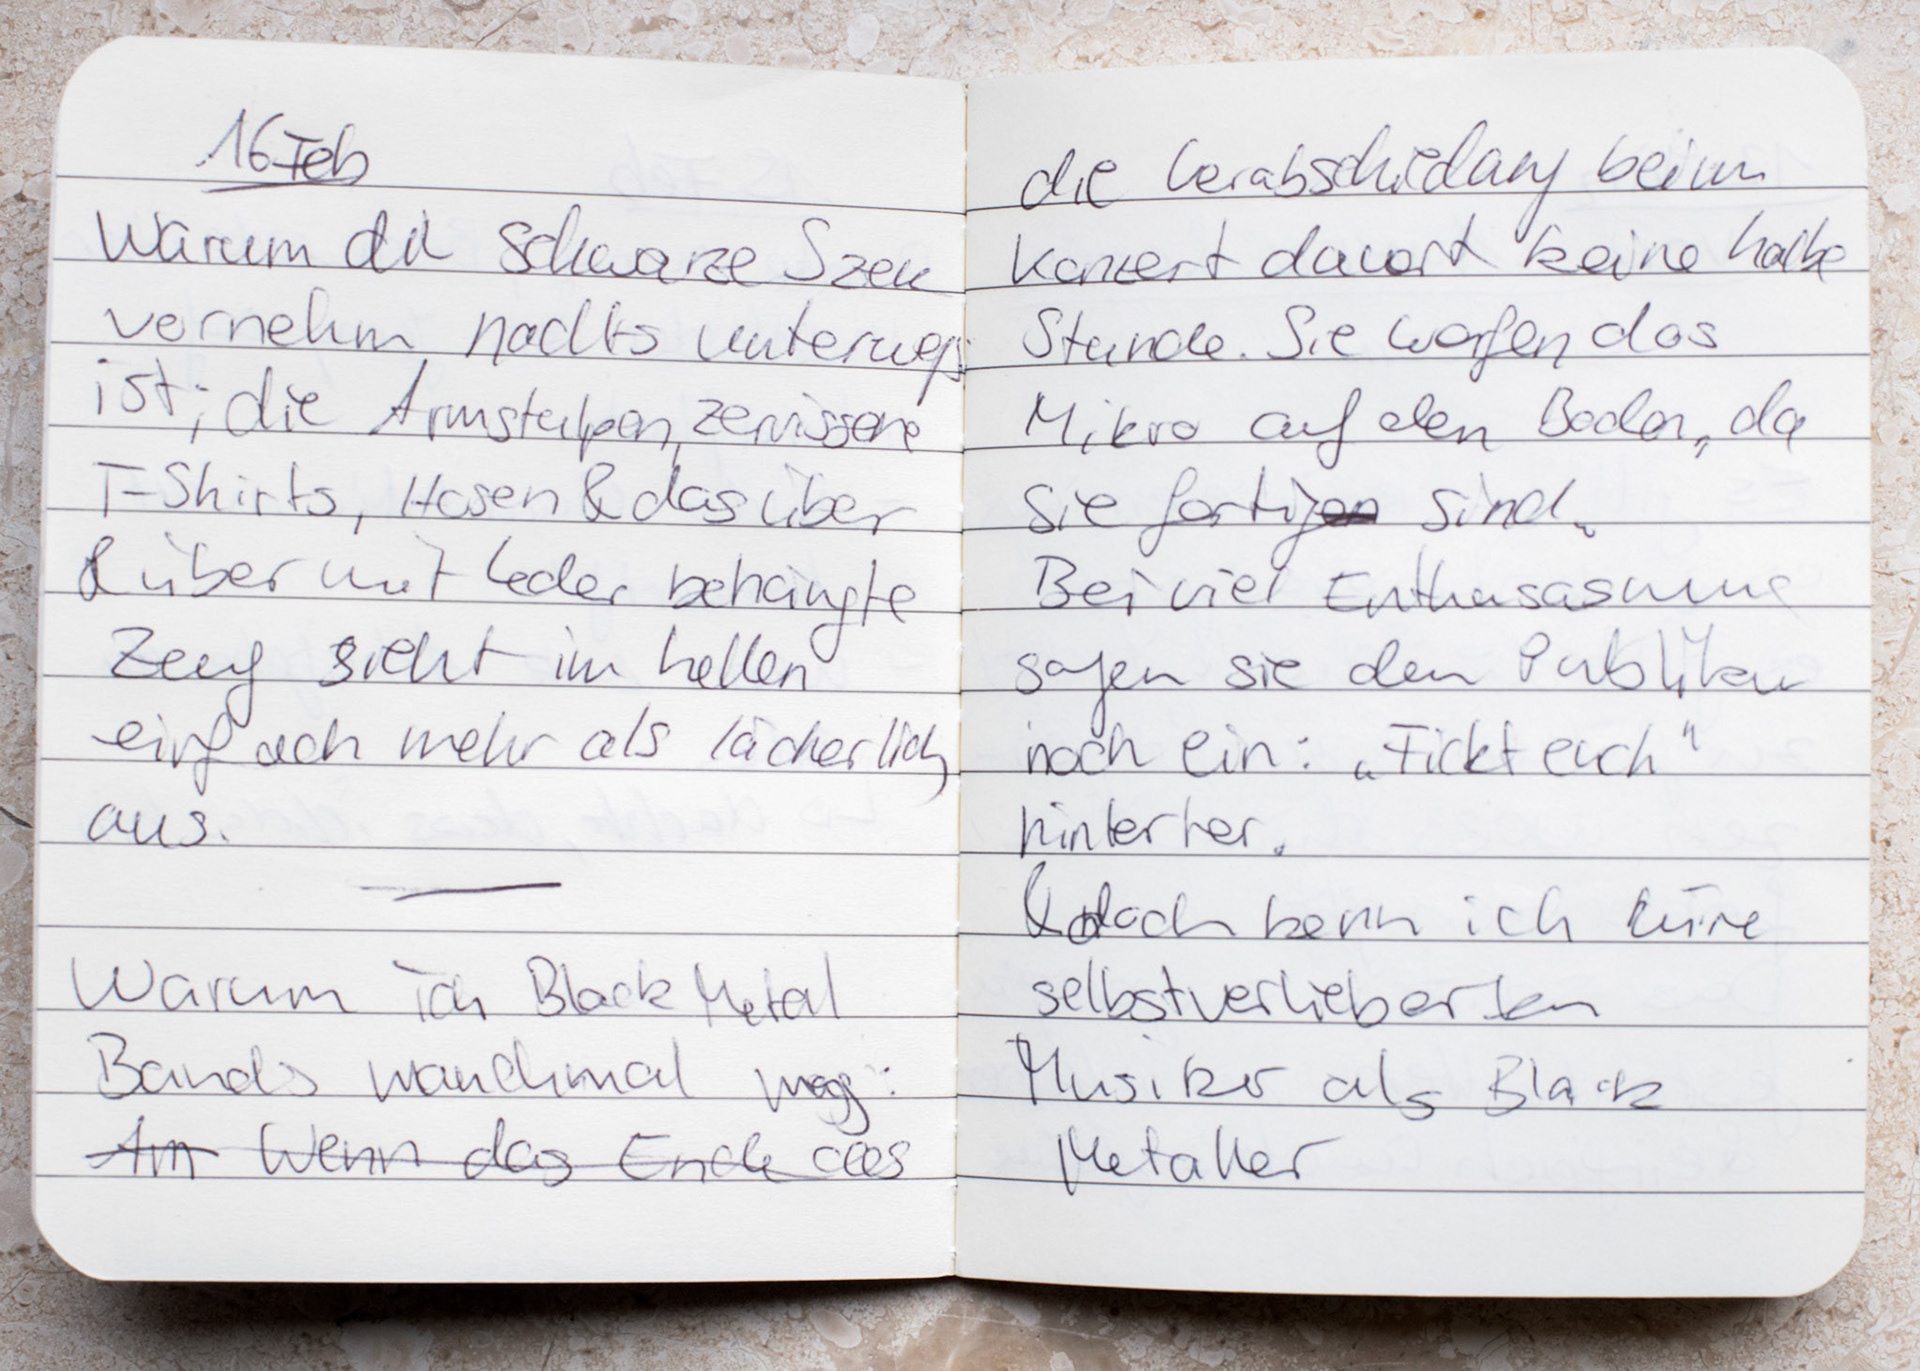 16 Feb
Warum die schwarze Szene
vornehm nachts unterwegs
ist; die Armstulpen, zerrissene
T-Shirts, Hosen & das über
& über mit Leder behängte
Zeug sieht im hellen
einfach mehr als lächerlich
aus.
Warum ich Black Metal
Bands manchmal mag:
Am Wenn das Ende des
die Verabschiedung beim
Konzert dauert keine halbe
Stunde. Sie werfen das
Mikro auf den Boden, da
sie fertig sind.
Bei viel Enthusasmus
sagen sie den Publikum
noch ein: „Fickt euch“
hinterher.
& doch kenn ich keine
selbstverliebten
Musiker als Black
Metaller